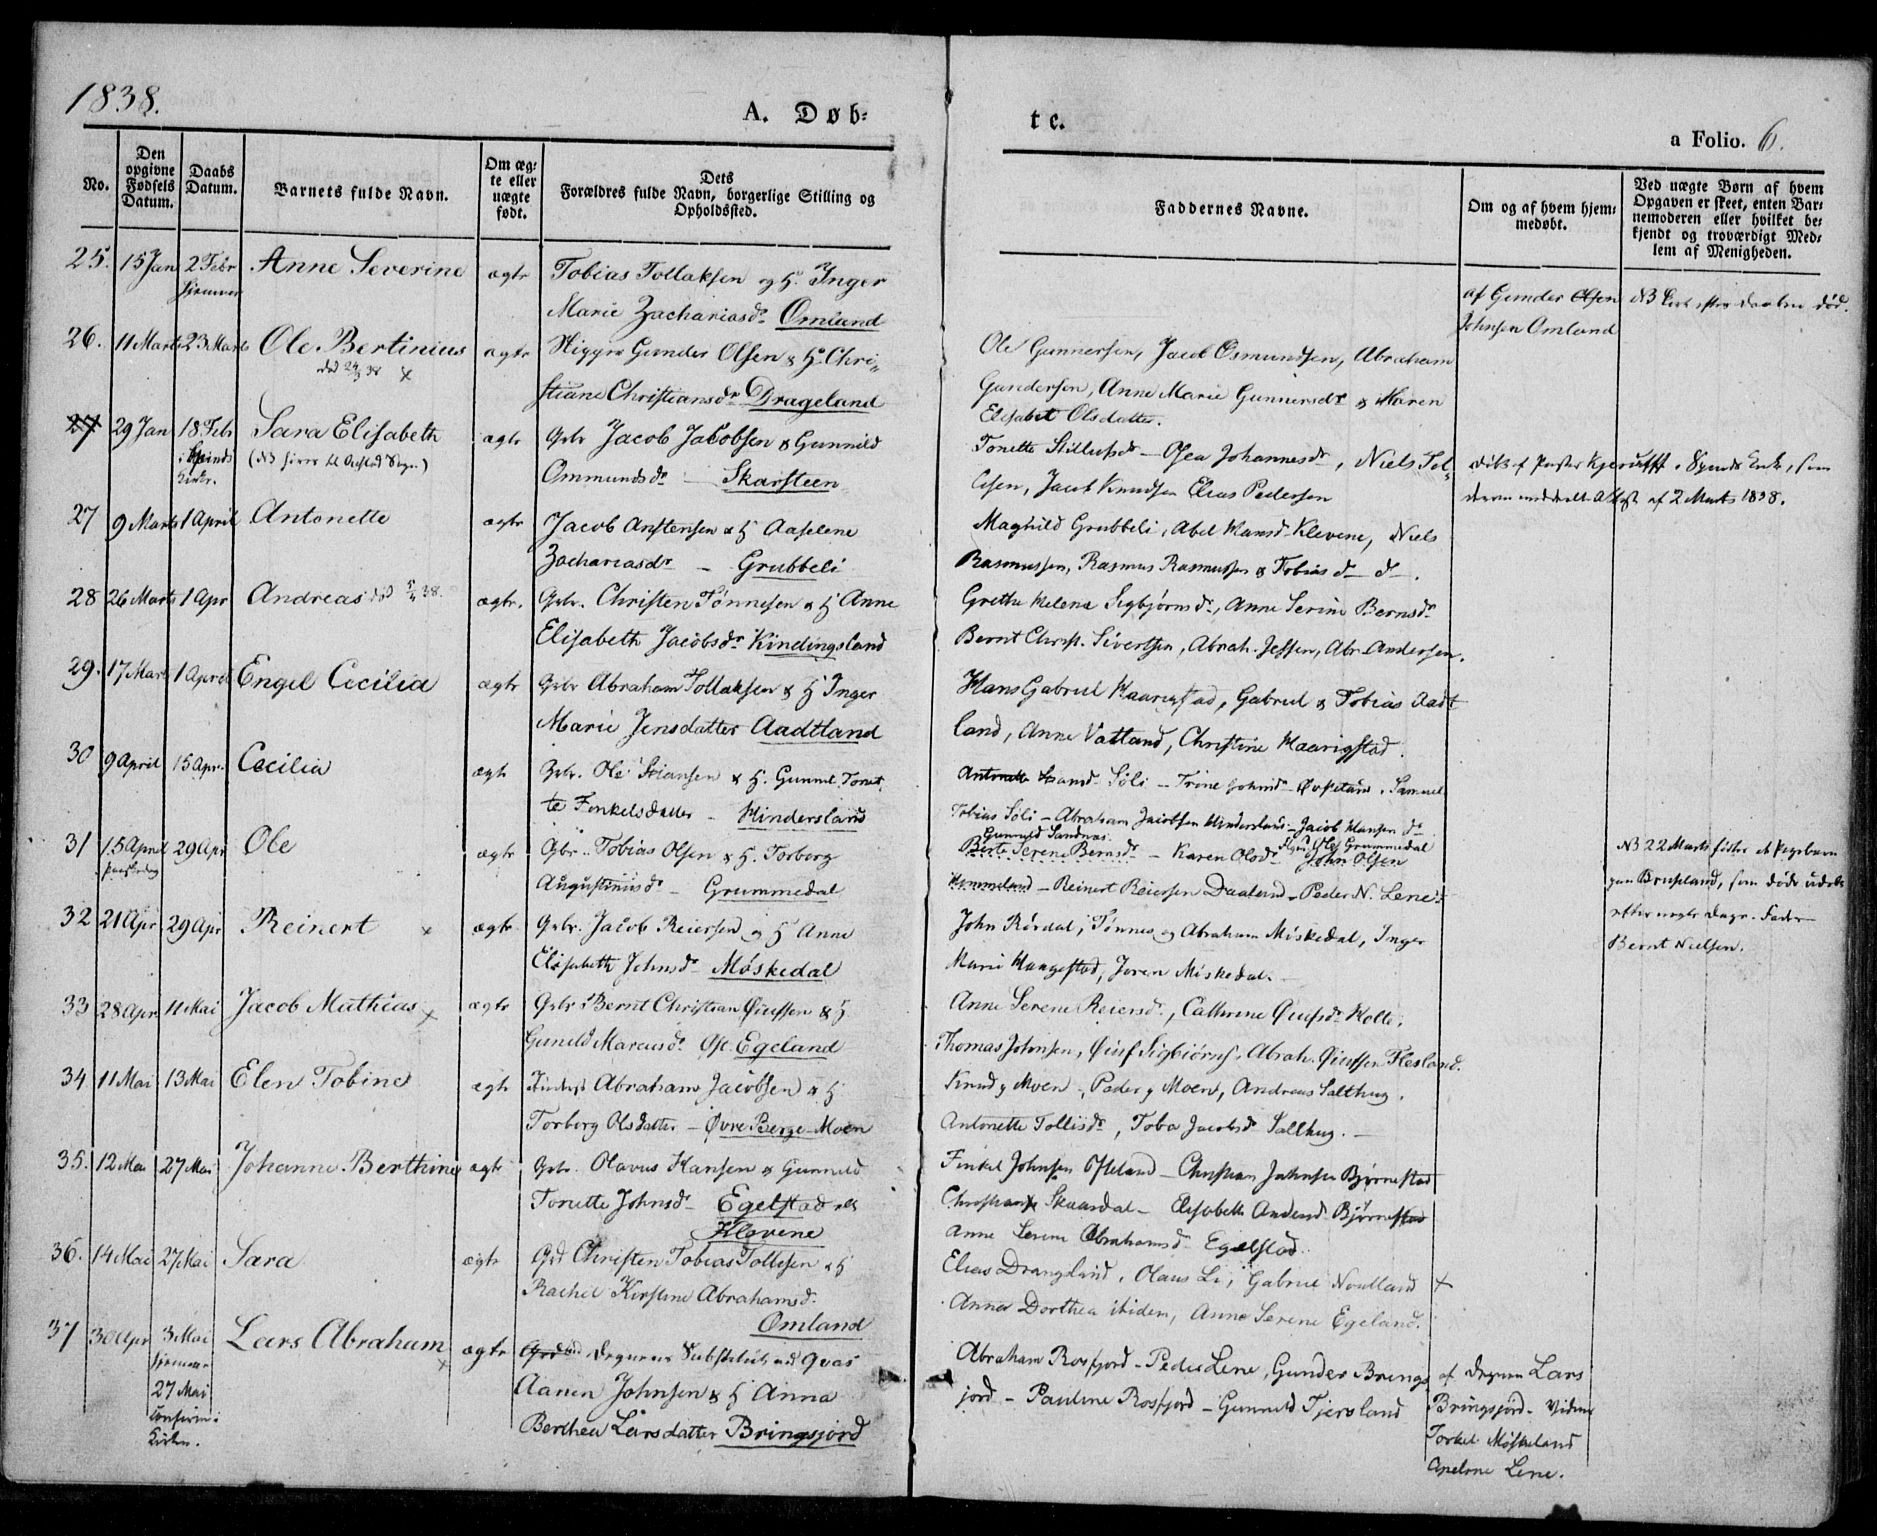 1838.
A. Døb-
te.
a Folio. 6.
No.
Den opgivne Fødsels Datum.
Daabs Datum.
Barnets fulde Navn.
Om æg-
te eller
uægte
født.
Dets
Forældres fulde Navn, borgerlige Stilling og
Opholdssted.
Faddernes Navne.
Om og af hvem hjem-
medøbt.
Ved uægte Børn af hvem
Opgaven er skeet, enten Bar-
nemoderen eller hvilket be-
kjendt og troværdigt Med-
lem af Menigheden.
25. 15 Jan 2 Febr Anne Severine ægte Tobias Tollaksen og H. Inger
Marie Zachariasdr Omland
af Gunder Olsen
Johnsen Omland
NB Strax efter Daaben død.
26. 11 Marts 23 Marts Ole Bertinius ægte Gunder Olsen & H. Chri-
død 24/3 38 x
stiane Christiansdr Drageland
Ole Gunnersen, Jacob Osmundsen, Abraham
Gundersen, Anne Marie Gunnersdr & Maren
Elisabet Olsdatter.
27 29 Jan 18 Febr Sara Elisabeth ægte Gbr Jacob Jacobsen & Gunnild
i Spinds Kirke.
Ommundsdr - Skarsteen
Tonette - Osea Johannesdr, Niels Tol-
lisen, Jacob Knudsen Elias Pedersen
af 2 Marts 1838.
27 9 Marts 1 April Antonette ægte Jacob Anstensen & H Aaselene
Zachariasdr - Grubbeli
Maghild Grubbeli, Abel Hansd Klevene, Niels
Rasmussen, Rasmus Rasmussen & Tobias d- d-.
28 26 Marts 1 Apr Andreas død 5/4 38. ægte. Gbr. Christen Tønnesen & H Anne
Elisabeth Jacobsdr Kindingsland
Grethe Helene Sigbjørnsdr, Anne Serine Berntsdr
Bernt Christ. Sivertsen, Abrah. Jessen, Abr. Andersen.
29. 17 Marts 1 April Engel Cecilia ægte Gbr Abraham Tollaksen & H Inger
Marie Jensdatter Aadtland
Hans Gabriel Haarigstad, Gabriel & Tobias Aadt
land, Anne Vatland, Christine Haarigstad.
30 9 April 15 Apr. Cecilia ægte Gbr. Ole & H. Gunnil Tonet-
te Finkelsdatter - Hindersland
Antonette Søli - Trine
Tobias Søli - Abraham Jacobsen Hindersland - Jacob Hansen dr
31 15 April 29 Apr Ole ægte Gbr. Tobias Olsen & H. Torborg
Paaskedag
Augustinusdr - Grummedal
Gunnild Sandnes
Birte Serene Berntsdr - Karen Olsdr John Olsen
- Reinert Reiersen Daaland - Peder N. Lene
NB 22 Marts
som døde
efter nogle Dage. Fader
Bernt Nielsen.
32 21 Apr 29 Apr Reinert x ægte Gbr. Jacob Reiersen og H Anne
Elisabeth Johnsdr Møskedal
John Rørdal, Tønnes og Abraham Møskedal, Inger
Marie Haugestad, Joren Møskedal.
33 28 Apr 11 Mai Jacob Mathias x ægte Gbr Bernt Christian Øiufsen & H
Gunild Marcusdr Øst. Egeland
Anne Serene Reiersdr, Cathrine Øiufsdr Holte,
Thomas Johnsen, Øiuf Sigbiørns., Abrah. Øiufsen Flesland.
34 11 Mai 13 Mai Elen Tobine ægte Abraham Jacobsen & H
Torborg Olsdatter - Øvre Berge-Moen
Knud y Moen -, Peder y Moen, Andreas Salthug.
Antonette Tollisdr, Toba Jacobsdr Salthug. -
35. 12 Mai 27 Mai Johanne Berthine ægte Gbr. Olavus Hansen & Gunnild
Tonette Johnsdr - Egelstad
Klevene
Finkel Johnsen Ofteland - Christian Johnsen Bjørnestad
Skaardal - Elisabeth Andersd Bjørnestad
Anne Serene Abrahamsd Egelstad.
36. 14 Mai 27 Mai Sara ægte Christen Tobias Tollesen & H
Rachel Kirstine Abrahamsd.
Omland
Elias Drangsland, Olaus Li, Gabriel Noulland x
Anna Dorthea ibidem, Anne Serene Egeland.
37 30 Apr 3 Mai Lars Abraham x ægte Degnens Substitut ved Qvas
hjemme
27 Mai
Kirken.
Aanen Johnsen & H Anna
Berthea Larsdatter Bringsjord
Abraham Rosfjord - Peder Lene, Gunder Brings
jord - Pauline Rosfjord - Gunnild Tjersland
af Degnen Lars
Bringsjord. Vidner
Torkel Møskeland
Lene.